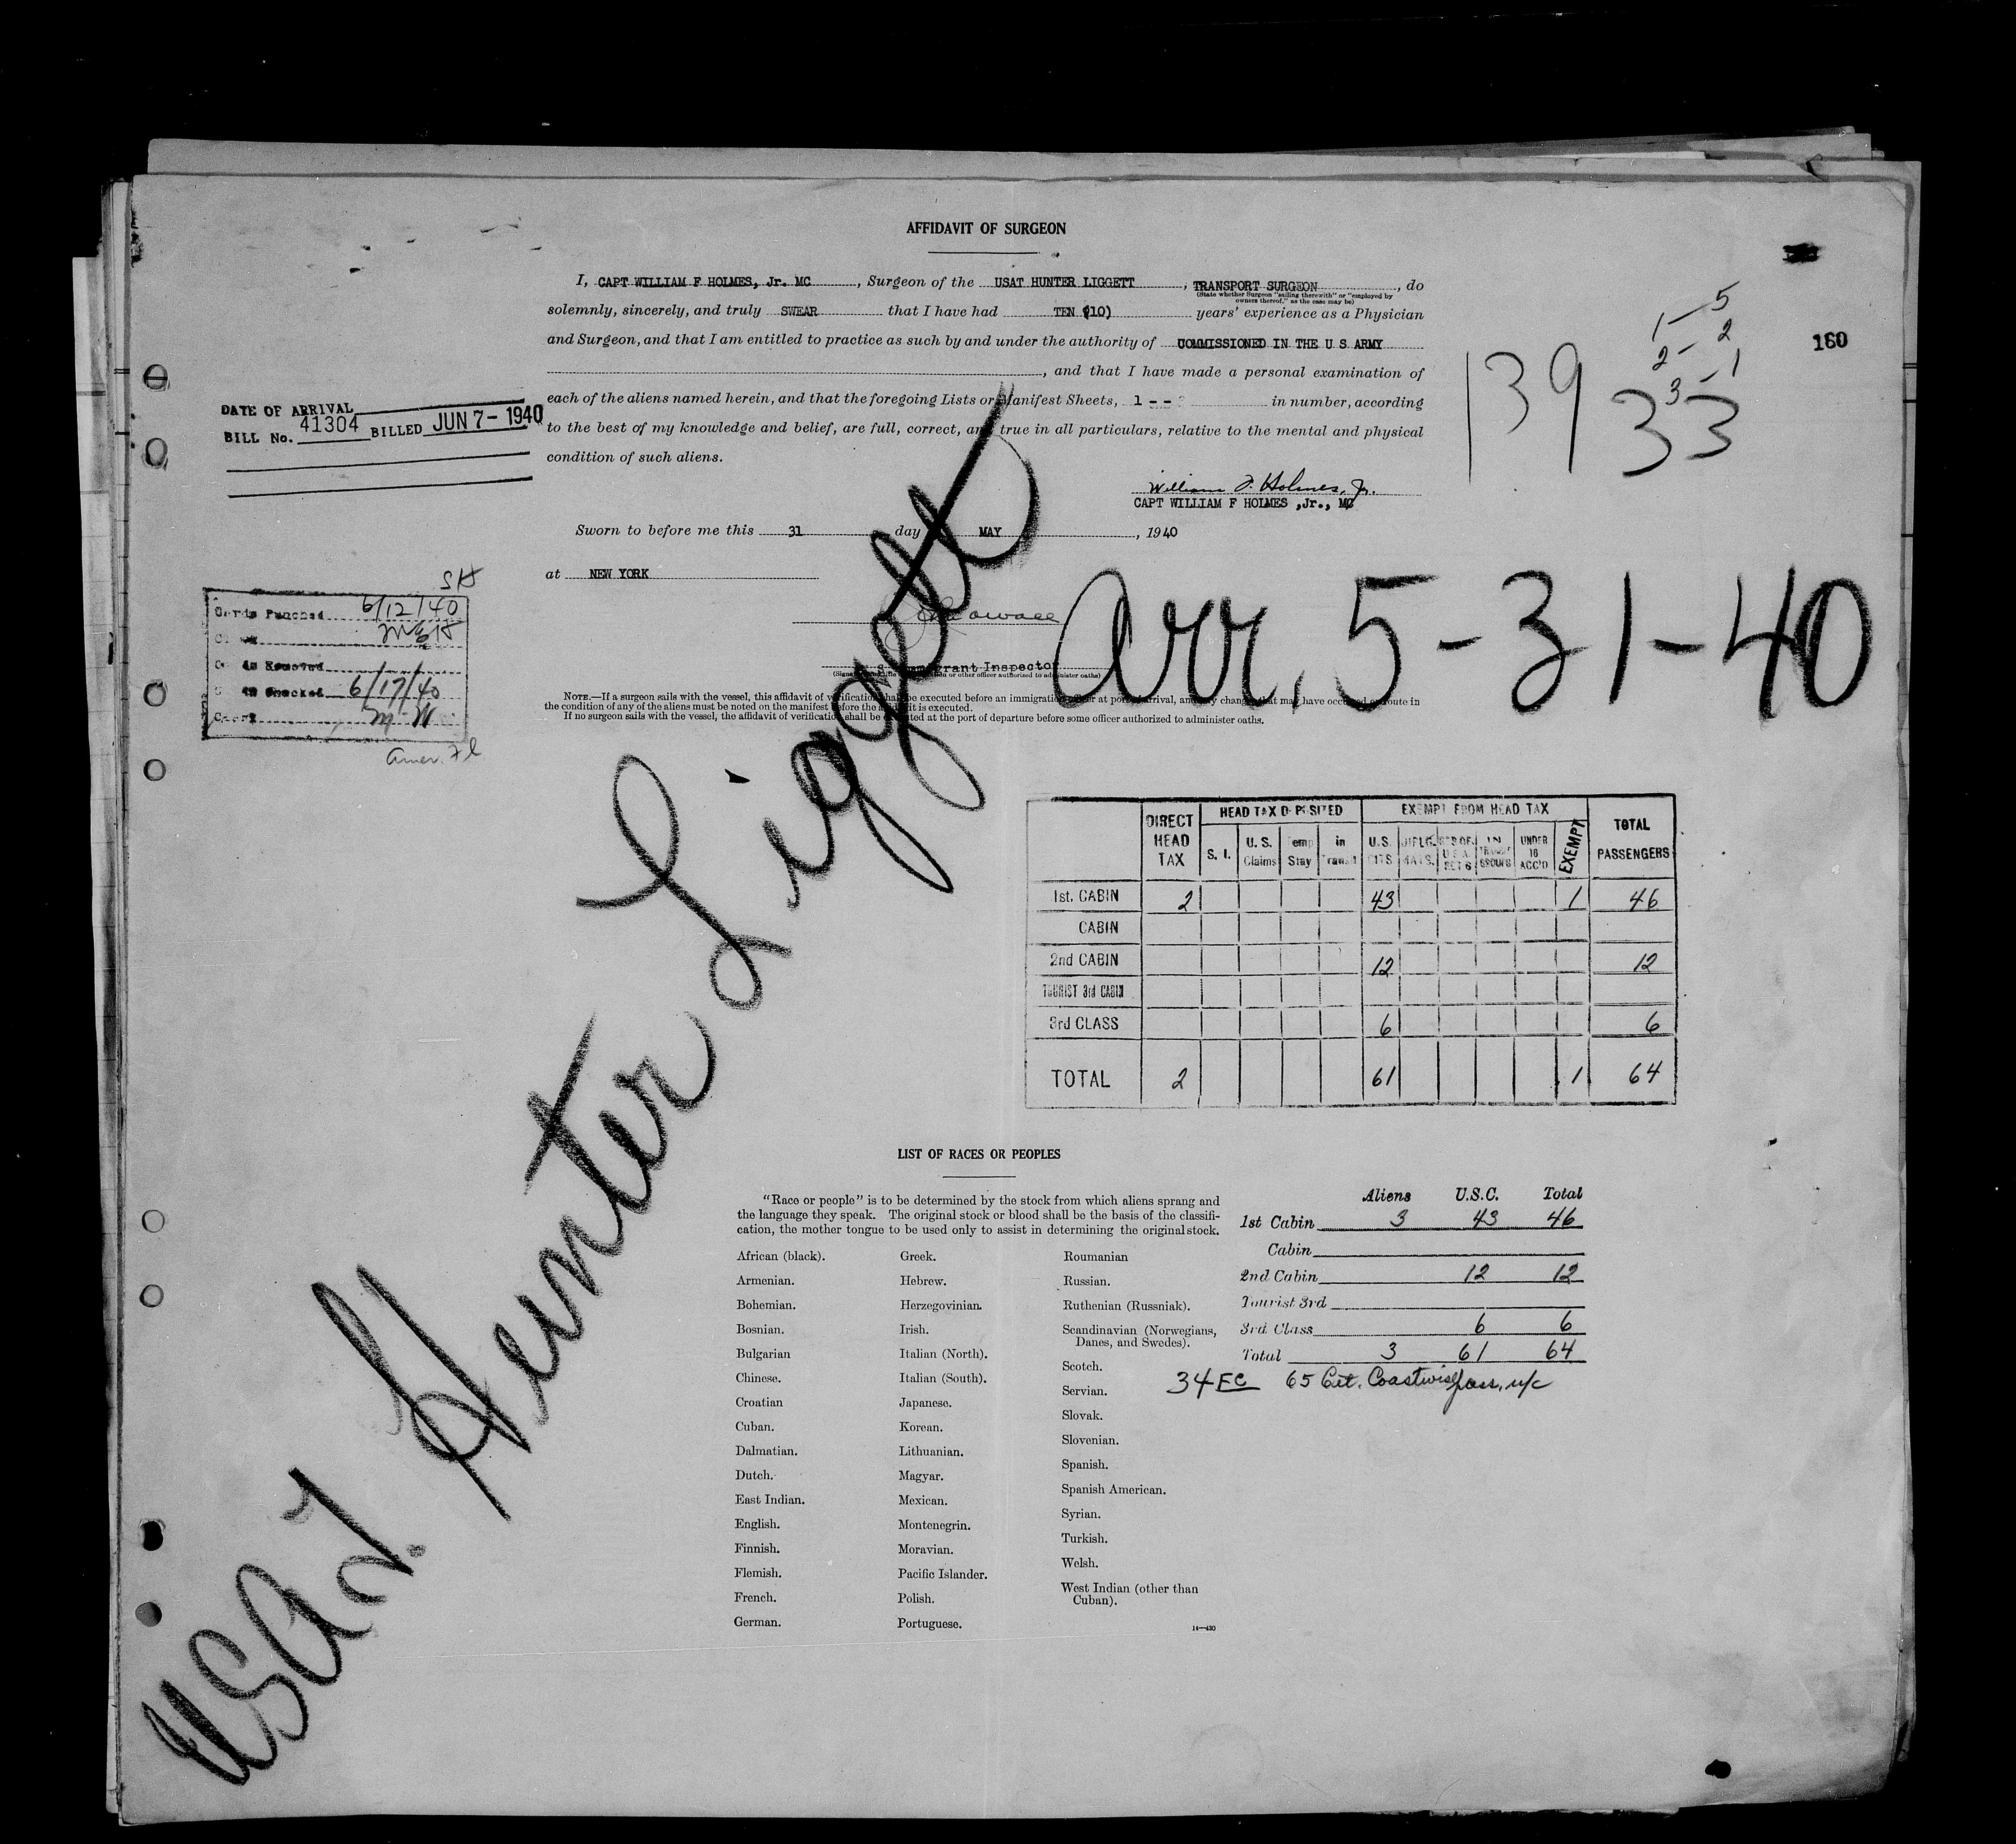 AFFIDAVIT OF SURGEON
I, CAPT WILLIAM F HOLMES, Jr. MC, Surgeon of the USAT HUNTER LIGGETT, TRANSPORT SURGEON, do
(State whether Surgeon "sailing therewith" or "employed by
owners thereof," as the case may be)
solemnly, sincerely, and truly SWEAR that I have had TEN (10) years' experience as a Physician
and Surgeon, and that I am entitled to practice as such by and under the authority of COMMISSIONED IN THE U S ARMY
, and that I have made a personal examination of
each of the aliens named herein, and that the foregoing Lists or Manifest Sheets, 1 - - in number, according
to the best of my knowledge and belief, are full, correct, and true in all particulars, relative to the mental and physical
condition of such aliens.
William F. Holmes, Jr.
CAPT WILLIAM F HOLMES ,Jr., MC
Sworn to before me this 31 day MAY, 1940
at NEW YORK
Immigrant Inspector
NOTE.—If a surgeon sails with the vessel, this affidavit of verification shall be executed before an immigration officer at port of arrival, and any change that may have occurred en route in
the condition of any of the aliens must be noted on the manifest before the affidavit is executed.
If no surgeon sails with the vessel, the affidavit of verification shall be executed at the port of departure before some officer authorized to administer oaths.
DATE OF ARRIVAL
BILL No. 41304 BILLED JUN 7 - 1940
SH
Cards Punched 6/12/40
6/17/40
Amer. Fl
1 - 5
2 - 2
3 - 1
139
33
160
Arr. 5-31-40
USAT. Hunter Liggett
DIRECT HEAD TAX HEAD TAX DEPOSITED EXEMPT FROM HEAD TAX TOTAL PASSENGERS
S. I. U. S. Claims Temp Stay in Transit U.S. CITS DIPLO-MATS. UNDER 16 ACC'D EXEMPT
1st. CABIN 2 43 1 46
CABIN
2nd CABIN 12 12
TOURIST 3rd CABIN
3rd CLASS 6 6
TOTAL 2 61 1 64
LIST OF RACES OR PEOPLES
"Race or people" is to be determined by the stock from which aliens sprang and
the language they speak. The original stock or blood shall be the basis of the classifi-
cation, the mother tongue to be used only to assist in determining the original stock.
African (black).
Armenian.
Bohemian.
Bosnian.
Bulgarian
Chinese.
Croatian
Cuban.
Dalmatian.
Dutch.
East Indian.
English.
Finnish.
Flemish.
French.
German.
Greek.
Hebrew.
Herzegovinian.
Irish.
Italian (North).
Italian (South).
Japanese.
Korean.
Lithuanian.
Magyar.
Mexican.
Montenegrin.
Moravian.
Pacific Islander.
Polish.
Portuguese.
Roumanian
Russian.
Ruthenian (Russniak).
Scandinavian (Norwegians,
Danes, and Swedes).
Scotch.
Servian.
Slovak.
Slovenian.
Spanish.
Spanish American.
Syrian.
Turkish.
Welsh.
West Indian (other than
Cuban).
14—430
Aliens U.S.C. Total
1st Cabin 3 43 46
Cabin
2nd Cabin 12 12
Tourist 3rd
3rd Class 6 6
Total 3 61 64
34 FC 65 Cit. Coastwise pass. n/c